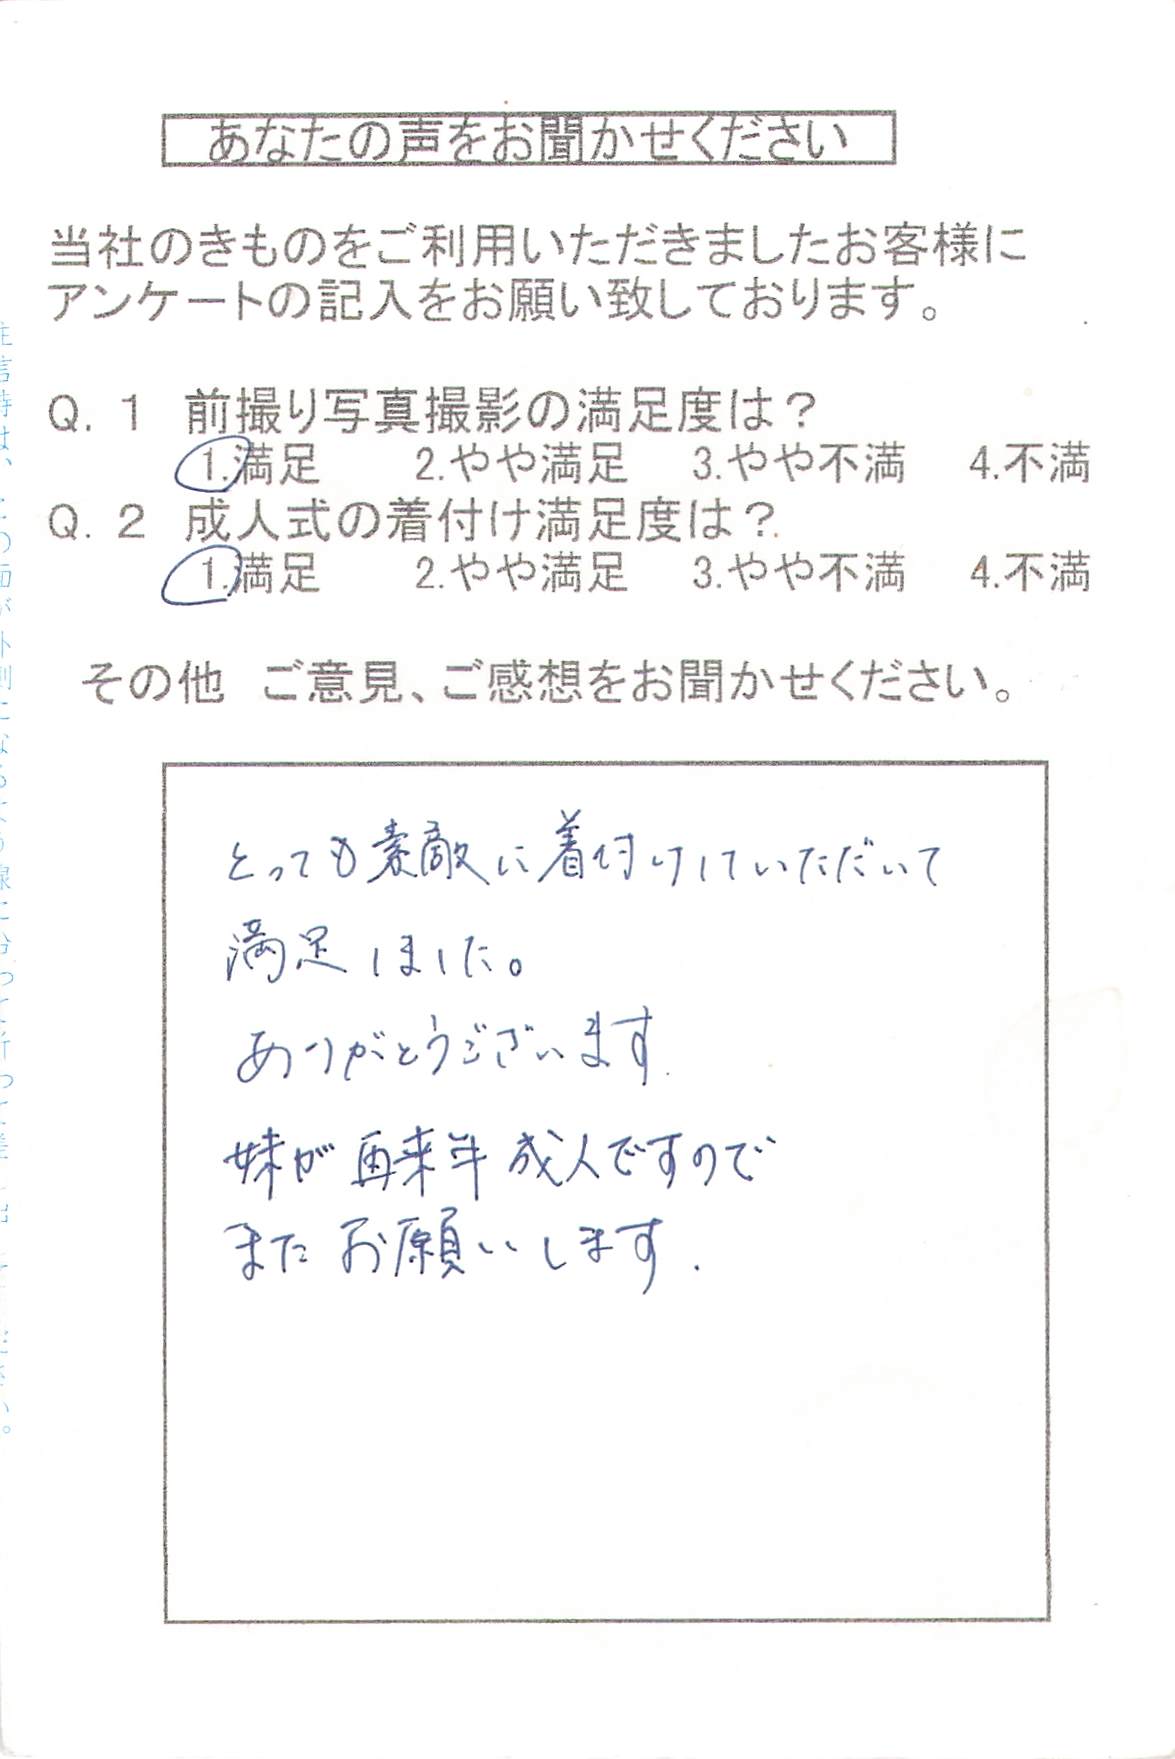 あなたの声をお聞かせください
当社のきものをご利用いただきましたお客様に
アンケートの記入をお願い致しております。
Q.1 前撮り写真撮影の満足度は?
1.満足 2.やや満足 3.やや不満 4.不満
Q.2 成人式の着付け満足度は?
1.満足 2.やや満足 3.やや不満 4.不満
その他 ご意見、ご感想をお聞かせください。
とっても素敵に着付けしていただいて
満足しました。
ありがとうございます.
妹が再来年成人ですので
またお願いします.